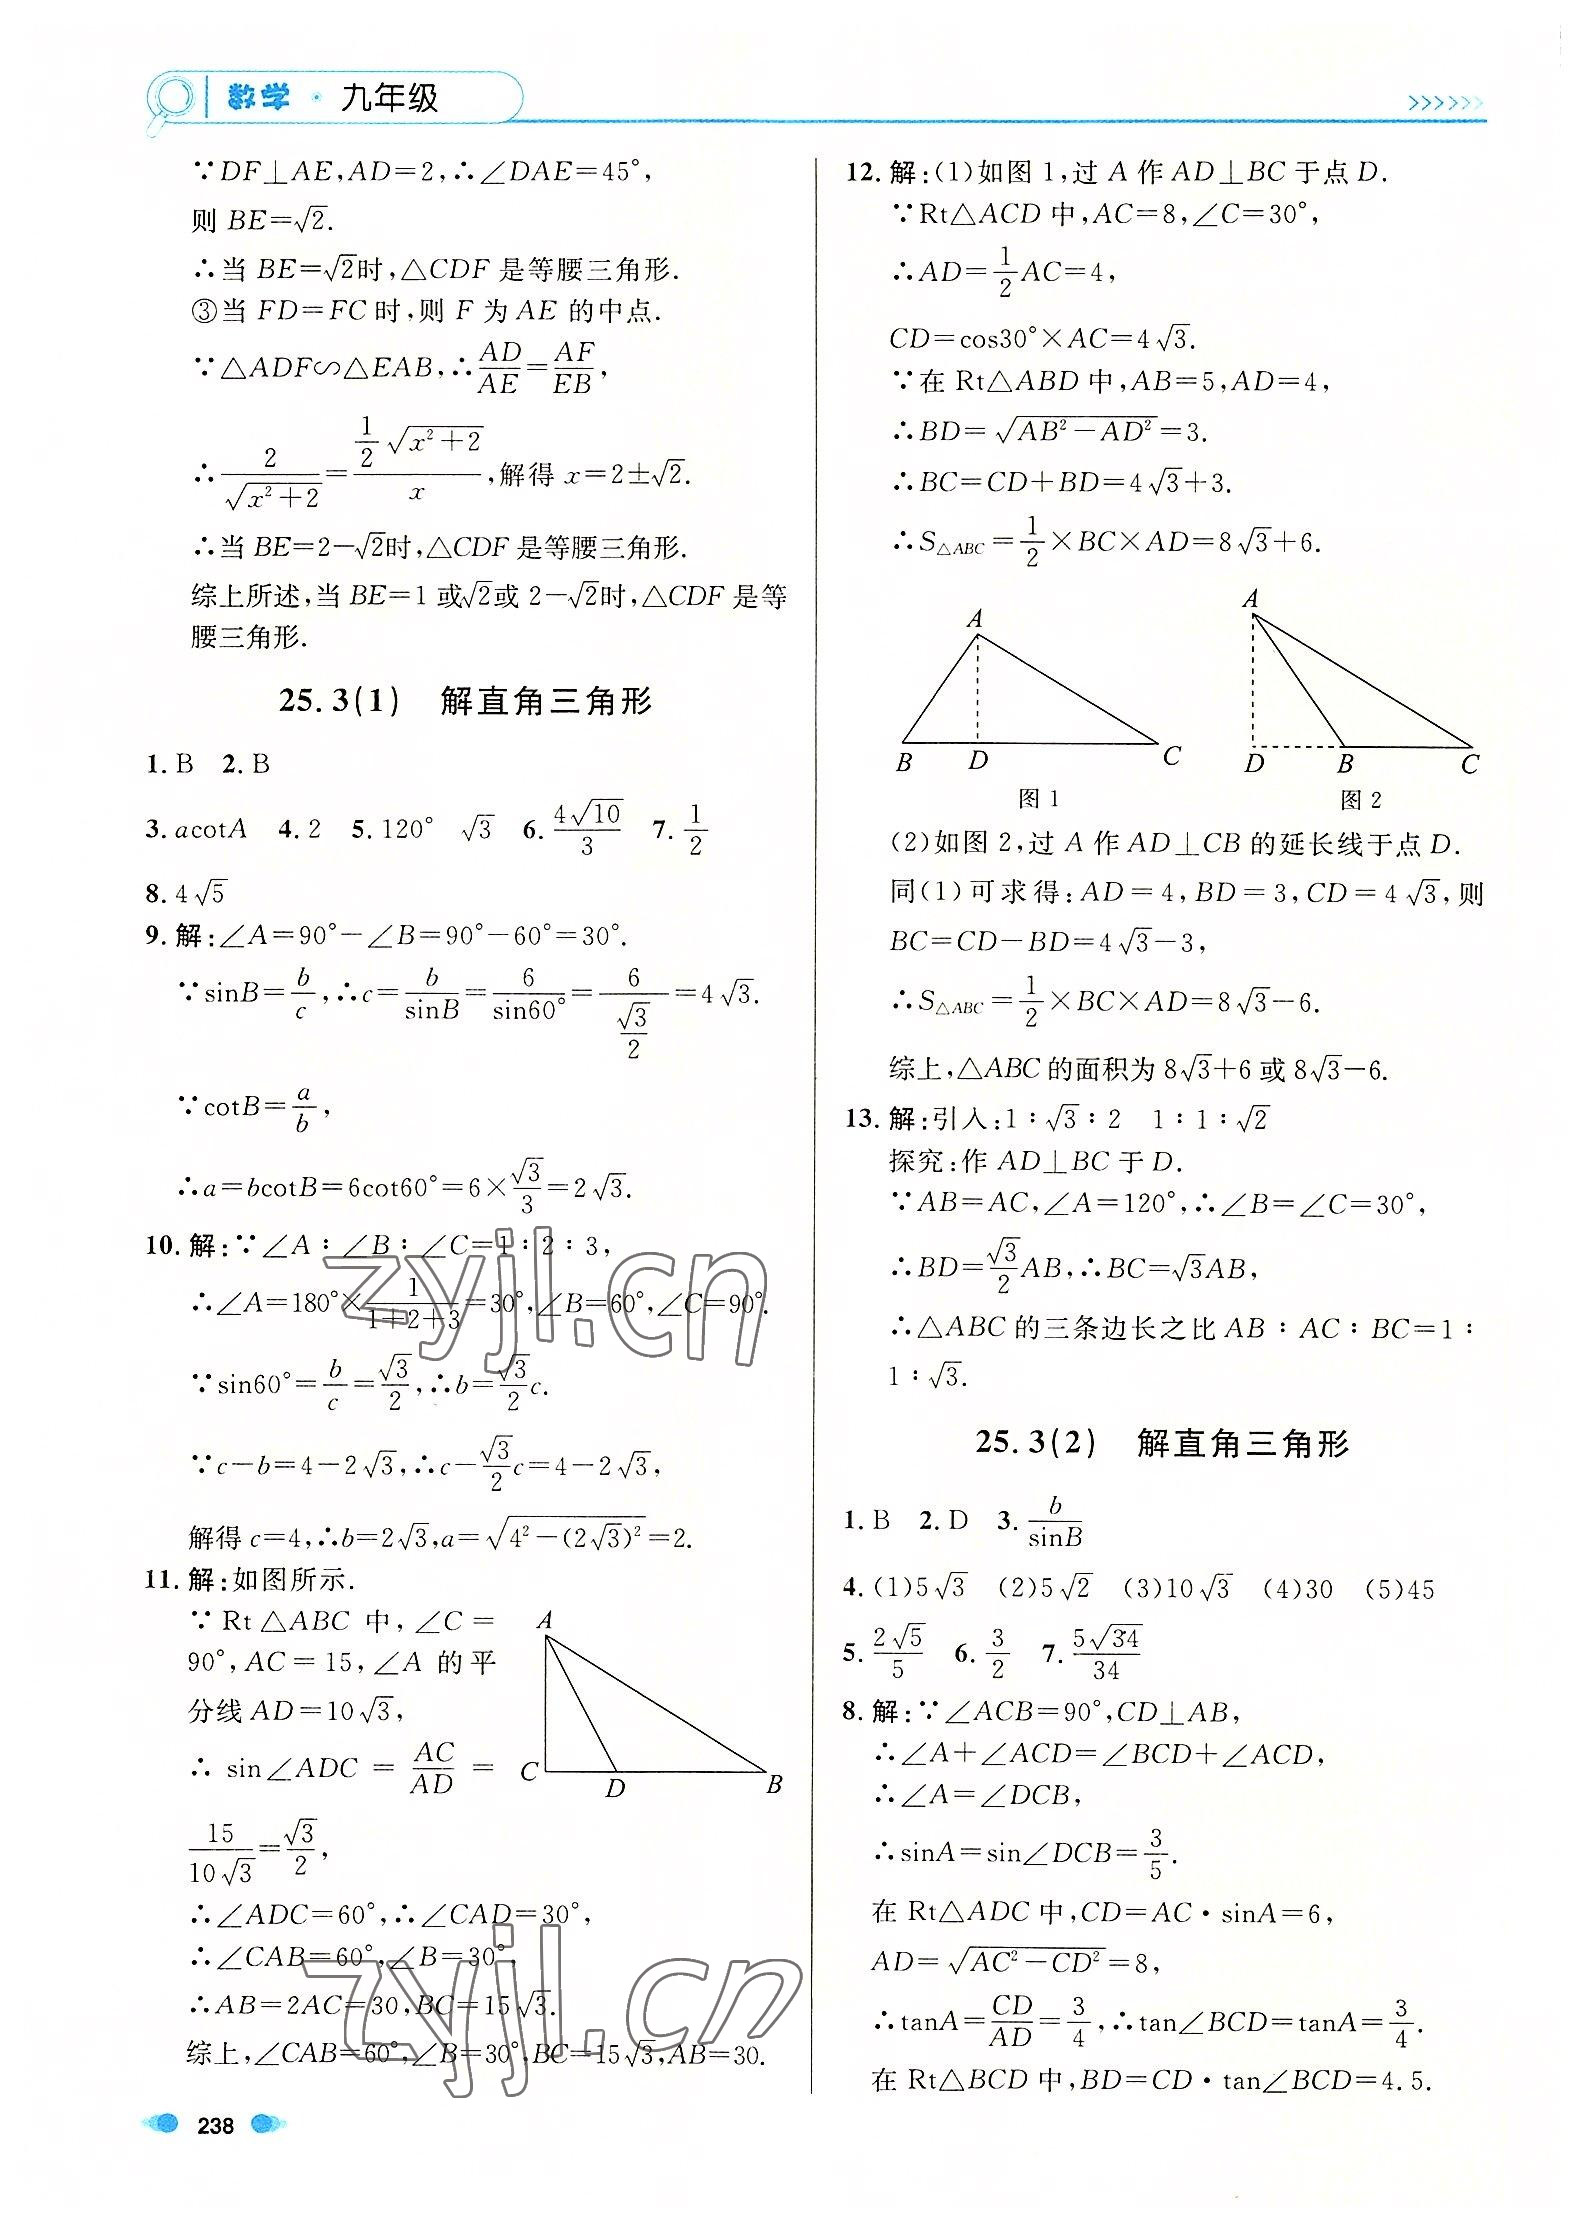 数学·九年级
>>>>>>
∵DF⊥AE,AD=2,∴∠DAE=45°,
则 BE=√2.
∴当 BE=√2时,△CDF 是等腰三角形.
③当 FD=FC 时,则 F 为 AE 的中点.
∵△ADF∽△EAB,∴AD/AE=AF/EB,
∴2/√(x²+2)=(1/2)√(x²+2)/x,解得 x=2±√2.
∴当 BE=2−√2时,△CDF 是等腰三角形.
综上所述,当 BE=1 或√2或 2−√2时,△CDF 是等
腰三角形.
25.3(1) 解直角三角形
1.B 2.B
3.acotA 4.2 5.120° √3 6.4√10/3 7.1/2
8.4√5
9.解:∠A=90°−∠B=90°−60°=30°.
∵sinB=b/c,∴c=b/sinB=6/sin60°=6/(√3/2)=4√3.
∵cotB=a/b,
∴a=bcotB=6cot60°=6×√3/3=2√3.
10.解:∵∠A∶∠B∶∠C=1∶2∶3,
∴∠A=180°×1/(1+2+3)=30°,∠B=60°,∠C=90°.
∵sin60°=b/c=√3/2,∴b=√3/2c.
∵c−b=4−2√3,∴c−√3/2c=4−2√3,
解得 c=4,∴b=2√3,a=√(4²−(2√3)²)=2.
11.解:如图所示.
∵ Rt△ABC 中,∠C=
90°,AC=15,∠A 的平
分线 AD=10√3,
∴ sin∠ADC = AC/AD =
15/10√3=√3/2,
A
C D B
∴∠ADC=60°,∴∠CAD=30°,
∴∠CAB=60°,∠B=30°,
∴AB=2AC=30,BC=15√3.
综上,∠CAB=60°,∠B=30°,BC=15√3,AB=30.
12.解:(1)如图 1,过 A 作 AD⊥BC 于点 D.
∵Rt△ACD 中,AC=8,∠C=30°,
∴AD=1/2AC=4,
CD=cos30°×AC=4√3.
∵在 Rt△ABD 中,AB=5,AD=4,
∴BD=√(AB²−AD²)=3.
∴BC=CD+BD=4√3+3.
∴S△ABC=1/2×BC×AD=8√3+6.
A
B D C
图 1
A
D B C
图 2
(2)如图 2,过 A 作 AD⊥CB 的延长线于点 D.
同(1)可求得:AD=4,BD=3,CD=4√3,则
BC=CD−BD=4√3−3,
∴S△ABC=1/2×BC×AD=8√3−6.
综上,△ABC 的面积为 8√3+6 或 8√3−6.
13.解:引入:1∶√3∶2 1∶1∶√2
探究:作 AD⊥BC 于 D.
∵AB=AC,∠A=120°,∴∠B=∠C=30°,
∴BD=√3/2AB,∴BC=√3AB,
∴△ABC 的三条边长之比 AB∶AC∶BC=1∶
1∶√3.
25.3(2) 解直角三角形
1.B 2.D 3.b/sinB
4.(1)5√3 (2)5√2 (3)10√3 (4)30 (5)45
5.2√5/5 6.3/2 7.5√34/34
8.解:∵∠ACB=90°,CD⊥AB,
∴∠A+∠ACD=∠BCD+∠ACD,
∴∠A=∠DCB,
∴sinA=sin∠DCB=3/5.
在 Rt△ADC 中,CD=AC·sinA=6,
AD=√(AC²−CD²)=8,
∴tanA=CD/AD=3/4,∴tan∠BCD=tanA=3/4.
在 Rt△BCD 中,BD=CD·tan∠BCD=4.5.
238
zyjl.cn
zyjl.cn